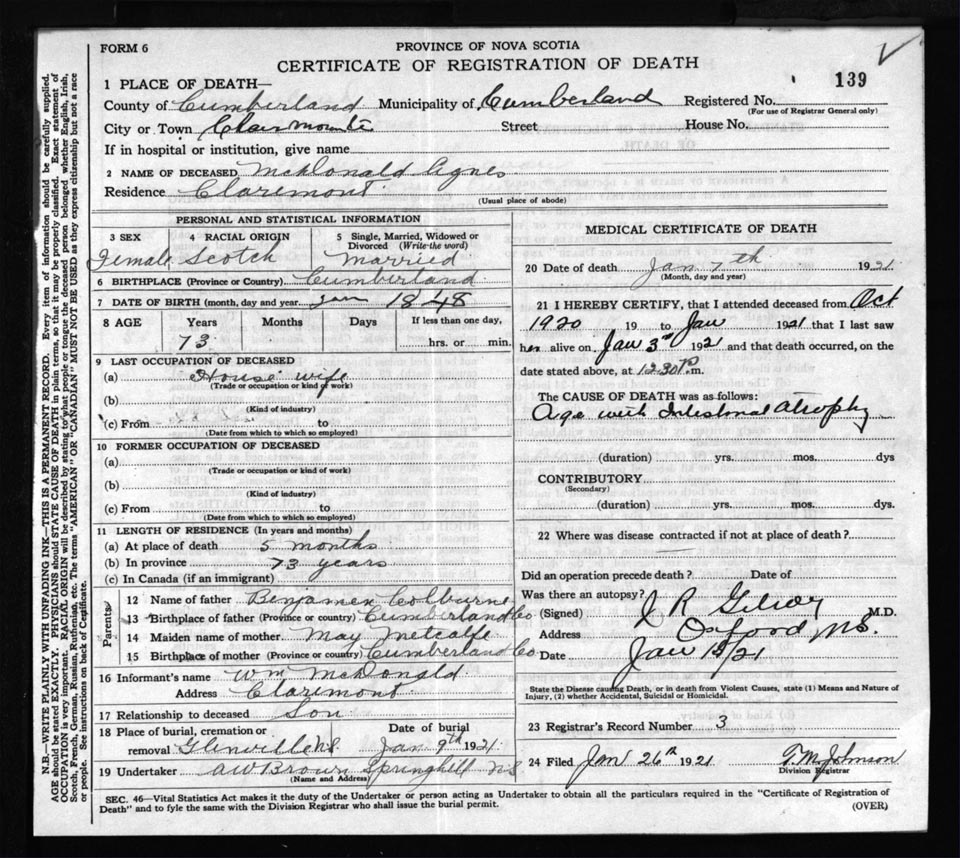 FORM 6
PROVINCE OF NOVA SCOTIA
CERTIFICATE OF REGISTRATION OF DEATH
139
1 PLACE OF DEATH—
County of Cumberland Municipality of Cumberland Registered No.
(For use of Registrar General only)
City or Town Clairmonte Street House No.
If in hospital or institution, give name
2 NAME OF DECEASED McDonald Agnes
Residence Claremont
(Usual place of abode)
PERSONAL AND STATISTICAL INFORMATION
3 SEX 4 RACIAL ORIGIN 5 Single, Married, Widowed or Divorced (Write the word)
Female Scotch Married
6 BIRTHPLACE (Province or Country) Cumberland
7 DATE OF BIRTH (month, day and year Jan 1848
8 AGE Years Months Days If less than one day,
73 hrs. or min.
9 LAST OCCUPATION OF DECEASED
(a) House wife
(Trade or occupation or kind of work)
(b)
(Kind of industry)
(c) From to
(Date from which to which so employed)
10 FORMER OCCUPATION OF DECEASED
(a)
(Trade or occupation or kind of work)
(b)
(Kind of industry)
(c) From to
(Date from which to which so employed)
11 LENGTH OF RESIDENCE (In years and months)
(a) At place of death 5 months
(b) In province 73 years
(c) In Canada (if an immigrant)
Parents
12 Name of father Benjamen Colburne
13 Birthplace of father (Province or country) Cumberland Co
14 Maiden name of mother May Metcalfe
15 Birthplace of mother (Province or country) Cumberland Co.
16 Informant's name Wm McDonald
Address Claremont
17 Relationship to deceased Son
18 Place of burial, cremation or Date of burial
removal Glenville NS Jan 9th 1921
19 Undertaker AW Brown Springhill NS
(Name and Address)
MEDICAL CERTIFICATE OF DEATH
20 Date of death Jan 7th 1921
(Month, day and year)
21 I HEREBY CERTIFY, that I attended deceased from Oct
1920 19 to Jan 1921 that I last saw
her alive on Jan 3rd 1921 and that death occurred, on the
date stated above, at 12.30 P.m.
The CAUSE OF DEATH was as follows:
Age with Intestonal Atrophy
(duration) yrs. mos. dys
CONTRIBUTORY
(Secondary)
(duration) yrs. mos. dys.
22 Where was disease contracted if not at place of death?
Did an operation precede death? Date of
Was there an autopsy?
(Signed) J R Gilroy M.D.
Address Oxford N.S.
Date Jan 18/21
State the Disease causing Death, or in death from Violent Causes, state (1) Means and Nature of
Injury, (2) whether Accidental, Suicidal or Homicidal.
23 Registrar's Record Number 3
24 Filed Jan 26th 1921 T.M. Johnson
Division Registrar
SEC. 46—Vital Statistics Act makes it the duty of the Undertaker or person acting as Undertaker to obtain all the particulars required in the "Certificate of Registration of
Death" and to fyle the same with the Division Registrar who shall issue the burial permit.
(OVER)
N.B.—WRITE PLAINLY WITH UNFADING INK—THIS IS A PERMANENT RECORD. Every item of information should be carefully supplied.
AGE should be stated EXACTLY. PHYSICIANS should STATE CAUSE OF DEATH in plain terms, so that it may be properly classified. Exact statement of
OCCUPATION is very important. RACIAL ORIGIN will be described by stating to what people or tongue the deceased person belonged whether English, Irish,
Scotch, French, German, Russian, Ruthenian, etc. The terms "AMERICAN" OR "CANADIAN" MUST NOT BE USED as they express citizenship but not a race
or people. See instructions on back of Certificate.